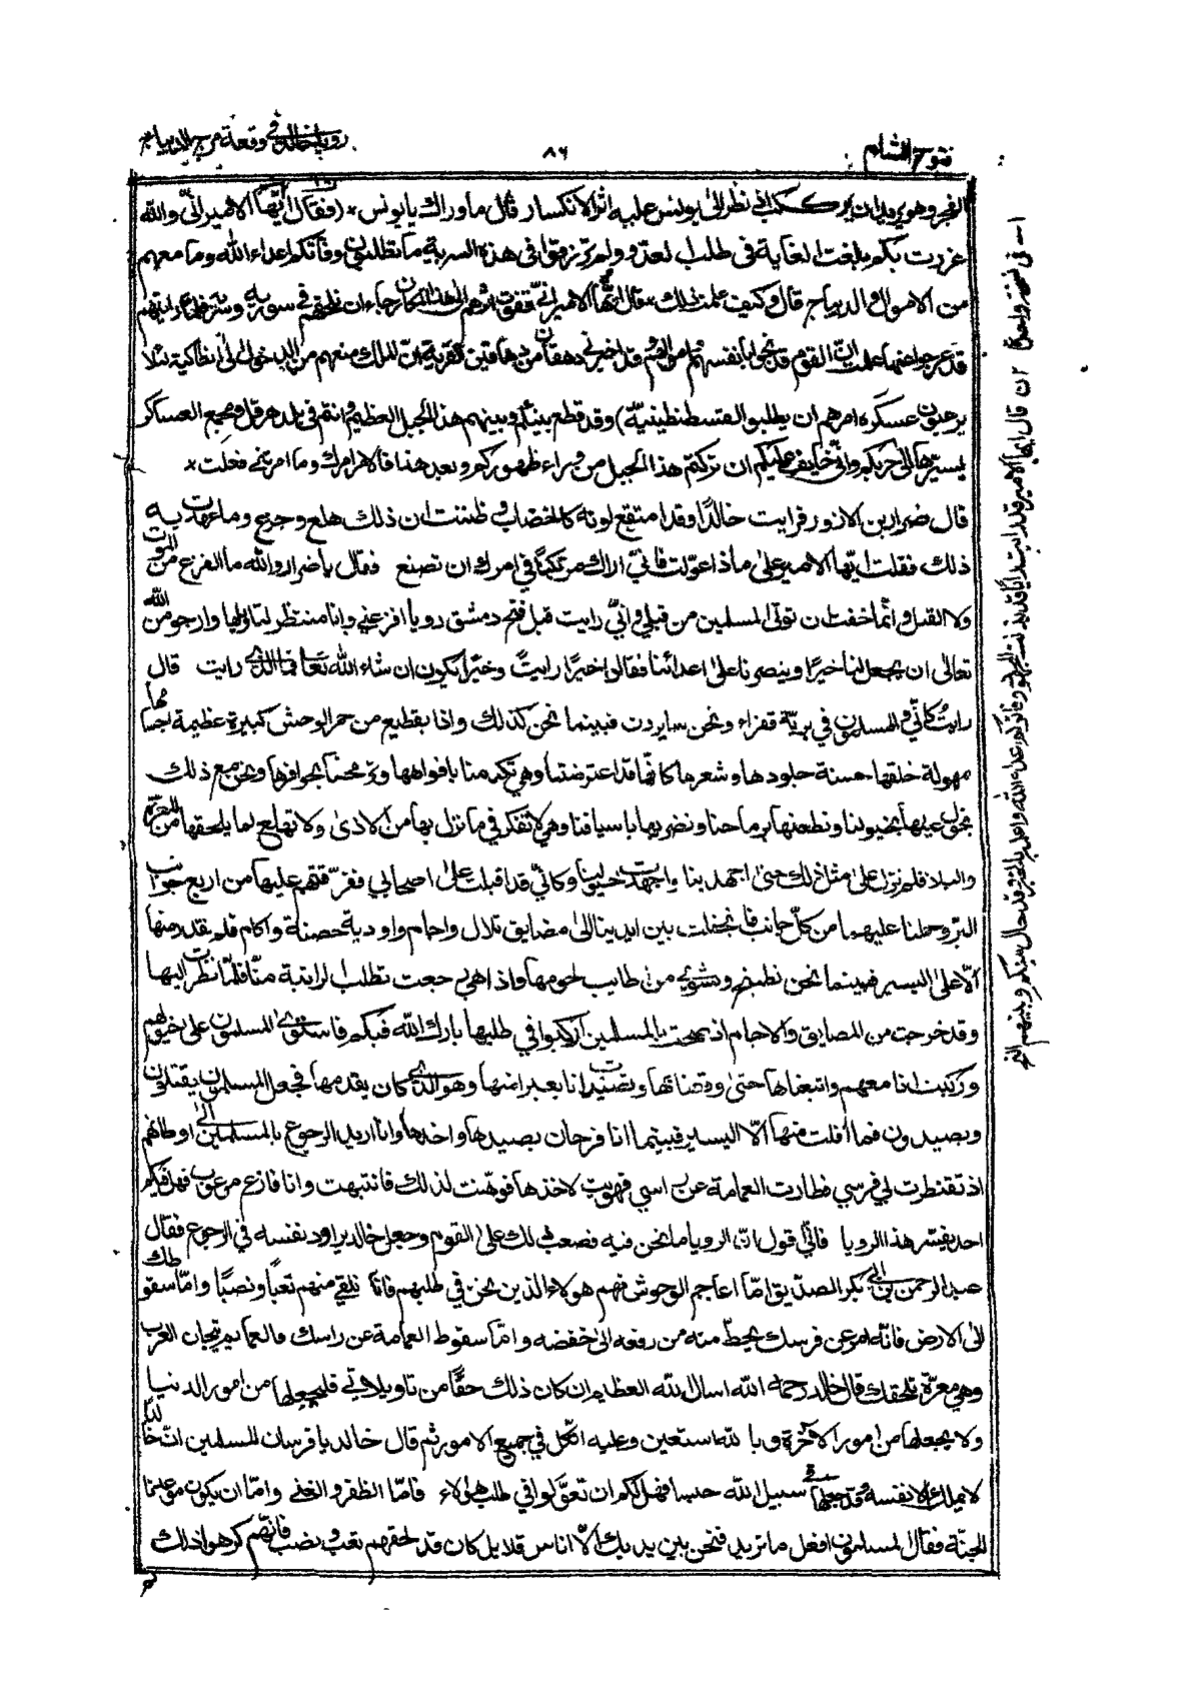 فتوح الشام
٨٦
رويا خالد في وقعة مرج الديباج
الفجر وهو يريد ان يركب اذ نظر الى يونس عليه اثر الانكسار قال ما وراك يا يونس × (فقال ايّها الامير انّي والله
غررت بكم وبلغت الغاية في طلب العدو ولم ترزقوا في هذه السرية ما تطلبون وفاتكم اعداء الله وما معهم
من الاموال والديباج قال وكيف علمت ذلك قال ايّها الامير انّي قفوت اثرهم الى هذا المكان رجاء ان نلحقهم في سورية
علمت انّ القوم قد نجوا بانفسهم قد اخبرني دهقان من دهاقين القرية انّ الملك منعهم من الدخول الى انطاكية لئلا
يرعبون عسكره امرهم ان يطلبوا القسطنطينية) وقد قطع بينكم وبينهم هذا الجبل العظيم وانتم في بلد هرقل ومجمع العسكر
ليسير بها الى حربكم وانّي خايف عليكم ان تركتم هذا الجبل من وراء ظهوركم وبعد هذا فالامر امرك وما امرتني فعلت ×
قال ضرار بن الازور فرايت خالدًا وقد امتقع لونه كالخضاب وظننت ان ذلك هلع وجزع وما عهدت به
ذلك فقلت ايّها الامير على ماذا عوّلت فانّي اراك مرتكبًا في امرك ان تصنع فقال يا ضرار والله ما الفزع من الموت
ولا القتل وانّما خفت ان توتى المسلمين من قبلي وانّي رايت قبل فتح دمشق رويا افزعتني وانا منتظر لتاويلها وارجو من الله
تعالى ان يجعل لنا خيرًا وينصرنا على اعدائنا فقالوا خيرًا رايت وخيرًا يكون ان شاء الله تعالى فما الذي رايت قال
رايت كانّي والمسلمون في بريّة قفراء ونحن سايرون فبينما نحن كذلك واذا بقطيع من حمر الوحش كبيرة عظيمة اجسامها
مهولة خلقها حسنة جلودها وشعرها كانّها قد اعترضتنا وهي تكدمنا بافواهها وترمحنا بحوافرها ونحن مع ذلك
نحن عليها بخيولنا ونطعنها برماحنا ونضربها باسيافنا وهي لا تفكر في ما نزل بها من الاذى ولا تهلع لما يلحقها من المعرّة
والبلا فلم نزل على مثل ذلك حتى اجهد بنا واجهدت خيولنا وكانّي قد اقبلت على اصحابي ففرّقتهم عليها من اربع جوانب
البرّ وحملنا عليهم من كلّ جانب فانجفلت بين ايدينا الى مضايق تلال واجام واودية حصنة واكام فلم نقدر منها
الّا على اليسير فبينما نحن نطبخ ونشوي من طايب لحومها واذا هي رجعت تطلب لراتبة منّا فلمّا نظرت اليها
وقد خرجت من المضايق والاجام اذ صحت بالمسلمين اركبوا في طلبها بارك الله فيكم فاستوى المسلمون على خيولهم
وركبت انا معهم واتبعناها حتى وقصناها وتصيّدت انا بعيرا منها وهو الذي كان يقدمها فجعل المسلمون يقتلون
ويصيدون فما افلت منها الّا اليسير فبينما انا فرحان بصيدها واخذها وانا اريد الرجوع بالمسلمين الى اوطانهم
اذ تقنطرت لي فرسي فطارت العمامة عن راسي فهويت لاخذها فوهنت لذلك فانتبهت وانا فازع مرعوب فهل فيكم
احد يفسّر هذا الرويا فانّي اقول انّ الرويا ما نحن فيه فصعب ذلك على القوم وجعل خالد يراود نفسه في الرجوع فقال
عبد الرحمن بن ابي بكر الصدّيق امّا اعاجم الوحوش فهم هولاء الذين نحن في طلبهم فانّا نلقى منهم تعبًا ونصبًا وامّا سقوطك
الى الارض فانّه امر عن فرسك يحطّ منه من رفعه الى خفضه وامّا سقوط العمامة عن راسك فالعمايم تيجان العرب
وهي معرّة تلحقك قال خالد رحمه الله اسال الله العظيم ان كان ذلك حقًّا من تاويلاتي فليجعلها من امور الدنيا
ولا يجعلها من امور الاخرة وبالله استعين وعليه اتّكل في جميع الامور ثم قال خالد يا فرسان المسلمين انّ خالدًا
لا يملك الّا نفسه وقد جعلها في سبيل الله حبسا فهل لكم ان تعوّلوا في طلب هؤلاء فامّا الظفر والغنى وامّا ان يكون موعدنا
الجنّة فقال المسلمون افعل ما تريد فنحن بين يديك الّا اناس قلايل كان قد لحقهم تعب ونصب فانّهم كرهوا ذلك
١ــ في نسخة واحدة
٢ ان قال ايها الامير
اعداء الله
وقد حال بينكم وبينهم